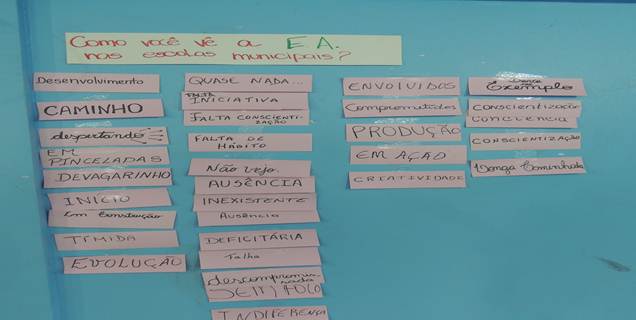 Como você vê a E A.
nas escolas municipais?
Desenvolvimento
CAMINHO
despertando
EM
PINCELADAS
DEVAGARINHO
INÍCIO
Em construção
TÍMIDA
EVOLUÇÃO
QUASE NADA...
FALTA
INICIATIVA
FALTA CONSCIENTI-
ZAÇÃO
FALTA DE
HÁBITO
Não vejo.
AUSÊNCIA
INEXISTENTE
Ausência
DEFICITÁRIA
Falha
descompromis-
sada
INDIFERENÇA
ENVOLVIDOS
Comprometidos
PRODUÇÃO
EM AÇÃO
CRIATIVIDADE
Exemplo
CONSCIENTIZAÇÃO
CONSCIENTIZAÇÃO
Longa Caminhada